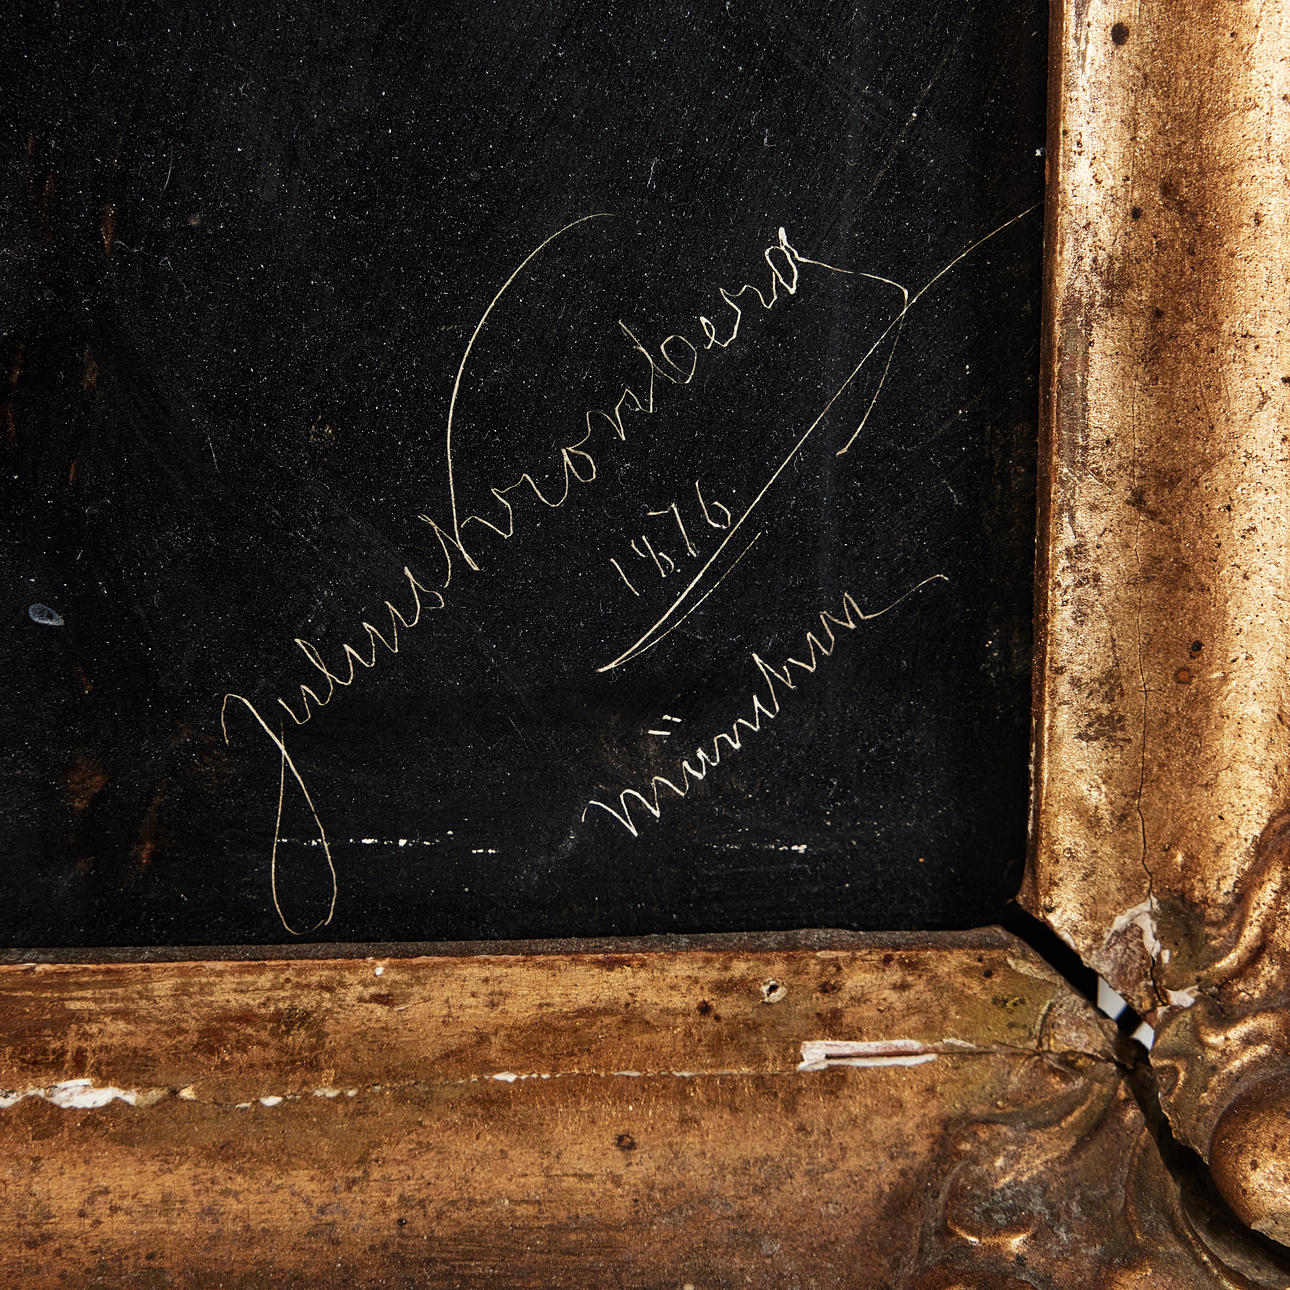 Julius Kronberg
1876
München